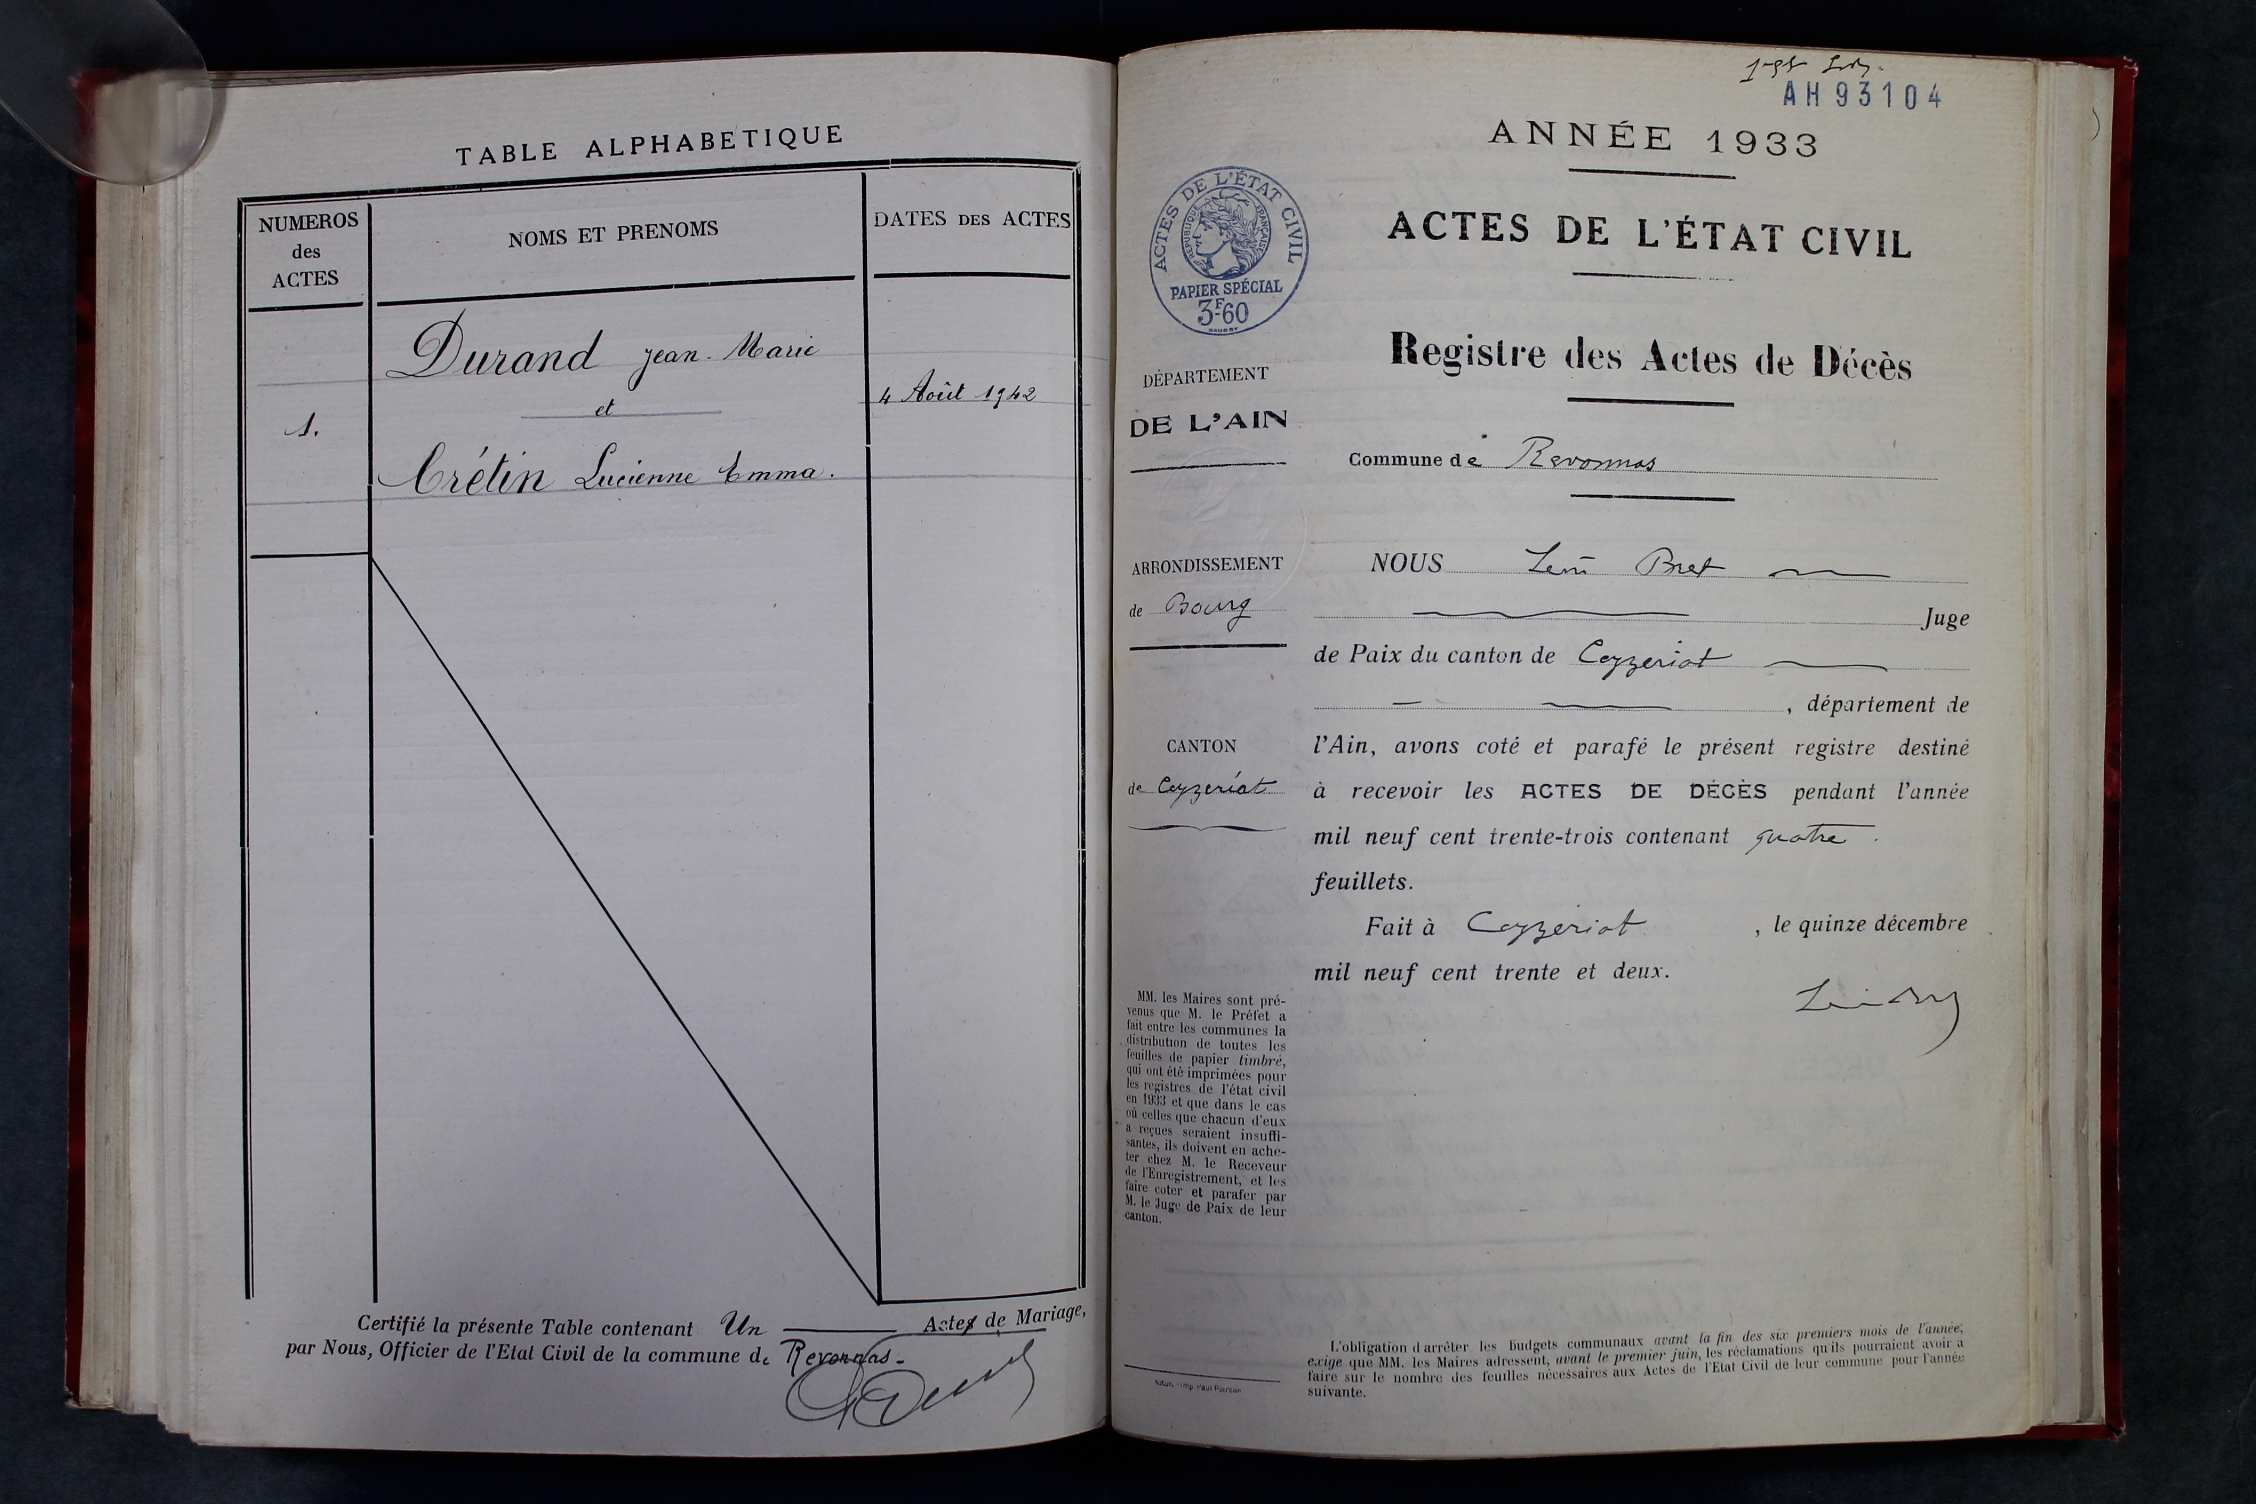 TABLE ALPHABETIQUE
NUMEROS
des
ACTES
NOMS ET PRENOMS
DATES DES ACTES
Durand Jean-Marie
et
4 Août 1942
1.
Crétin Lucienne Emma.
Certifié la présente Table contenant Un Actes de Mariage,
par Nous, Officier de l'Etat Civil de la commune de Revonnas.
AH93104
ANNÉE 1933
ACTES DE L'ÉTAT CIVIL
ACTES DE L'ÉTAT CIVIL
RÉPUBLIQUE FRANÇAISE
PAPIER SPÉCIAL
3F60
Registre des Actes de Décès
DÉPARTEMENT
DE L'AIN
Commune de Revonnas
ARRONDISSEMENT
de Bourg
CANTON
de Ceyzeriat
NOUS Bret
Juge
de Paix du canton de Ceyzeriat
, département de
l'Ain, avons coté et parafé le présent registre destiné
à recevoir les ACTES DE DÉCÈS pendant l'année
mil neuf cent trente-trois contenant quatre
feuillets.
Fait à Ceyzeriat , le quinze décembre
mil neuf cent trente et deux.
MM. les Maires sont pré-
venus que M. le Préfet a
fait entre les communes la
distribution de toutes les
feuilles de papier timbré,
qui ont été imprimées pour
les registres de l'état civil
en 1933 et que dans le cas
où celles que chacun d'eux
a reçues seraient insuffi-
santes, ils doivent en ache-
ter chez M. le Receveur
de l'Enregistrement, et les
faire coter et parafer par
M. le Juge de Paix de leur
canton.
L'obligation d'arrêter les budgets communaux avant la fin des six premiers mois de l'année,
exige que MM. les Maires adressent, avant le premier juin, les réclamations qu'ils pourraient avoir à
faire sur le nombre des feuilles nécessaires aux Actes de l'Etat Civil de leur commune pour l'année
suivante.